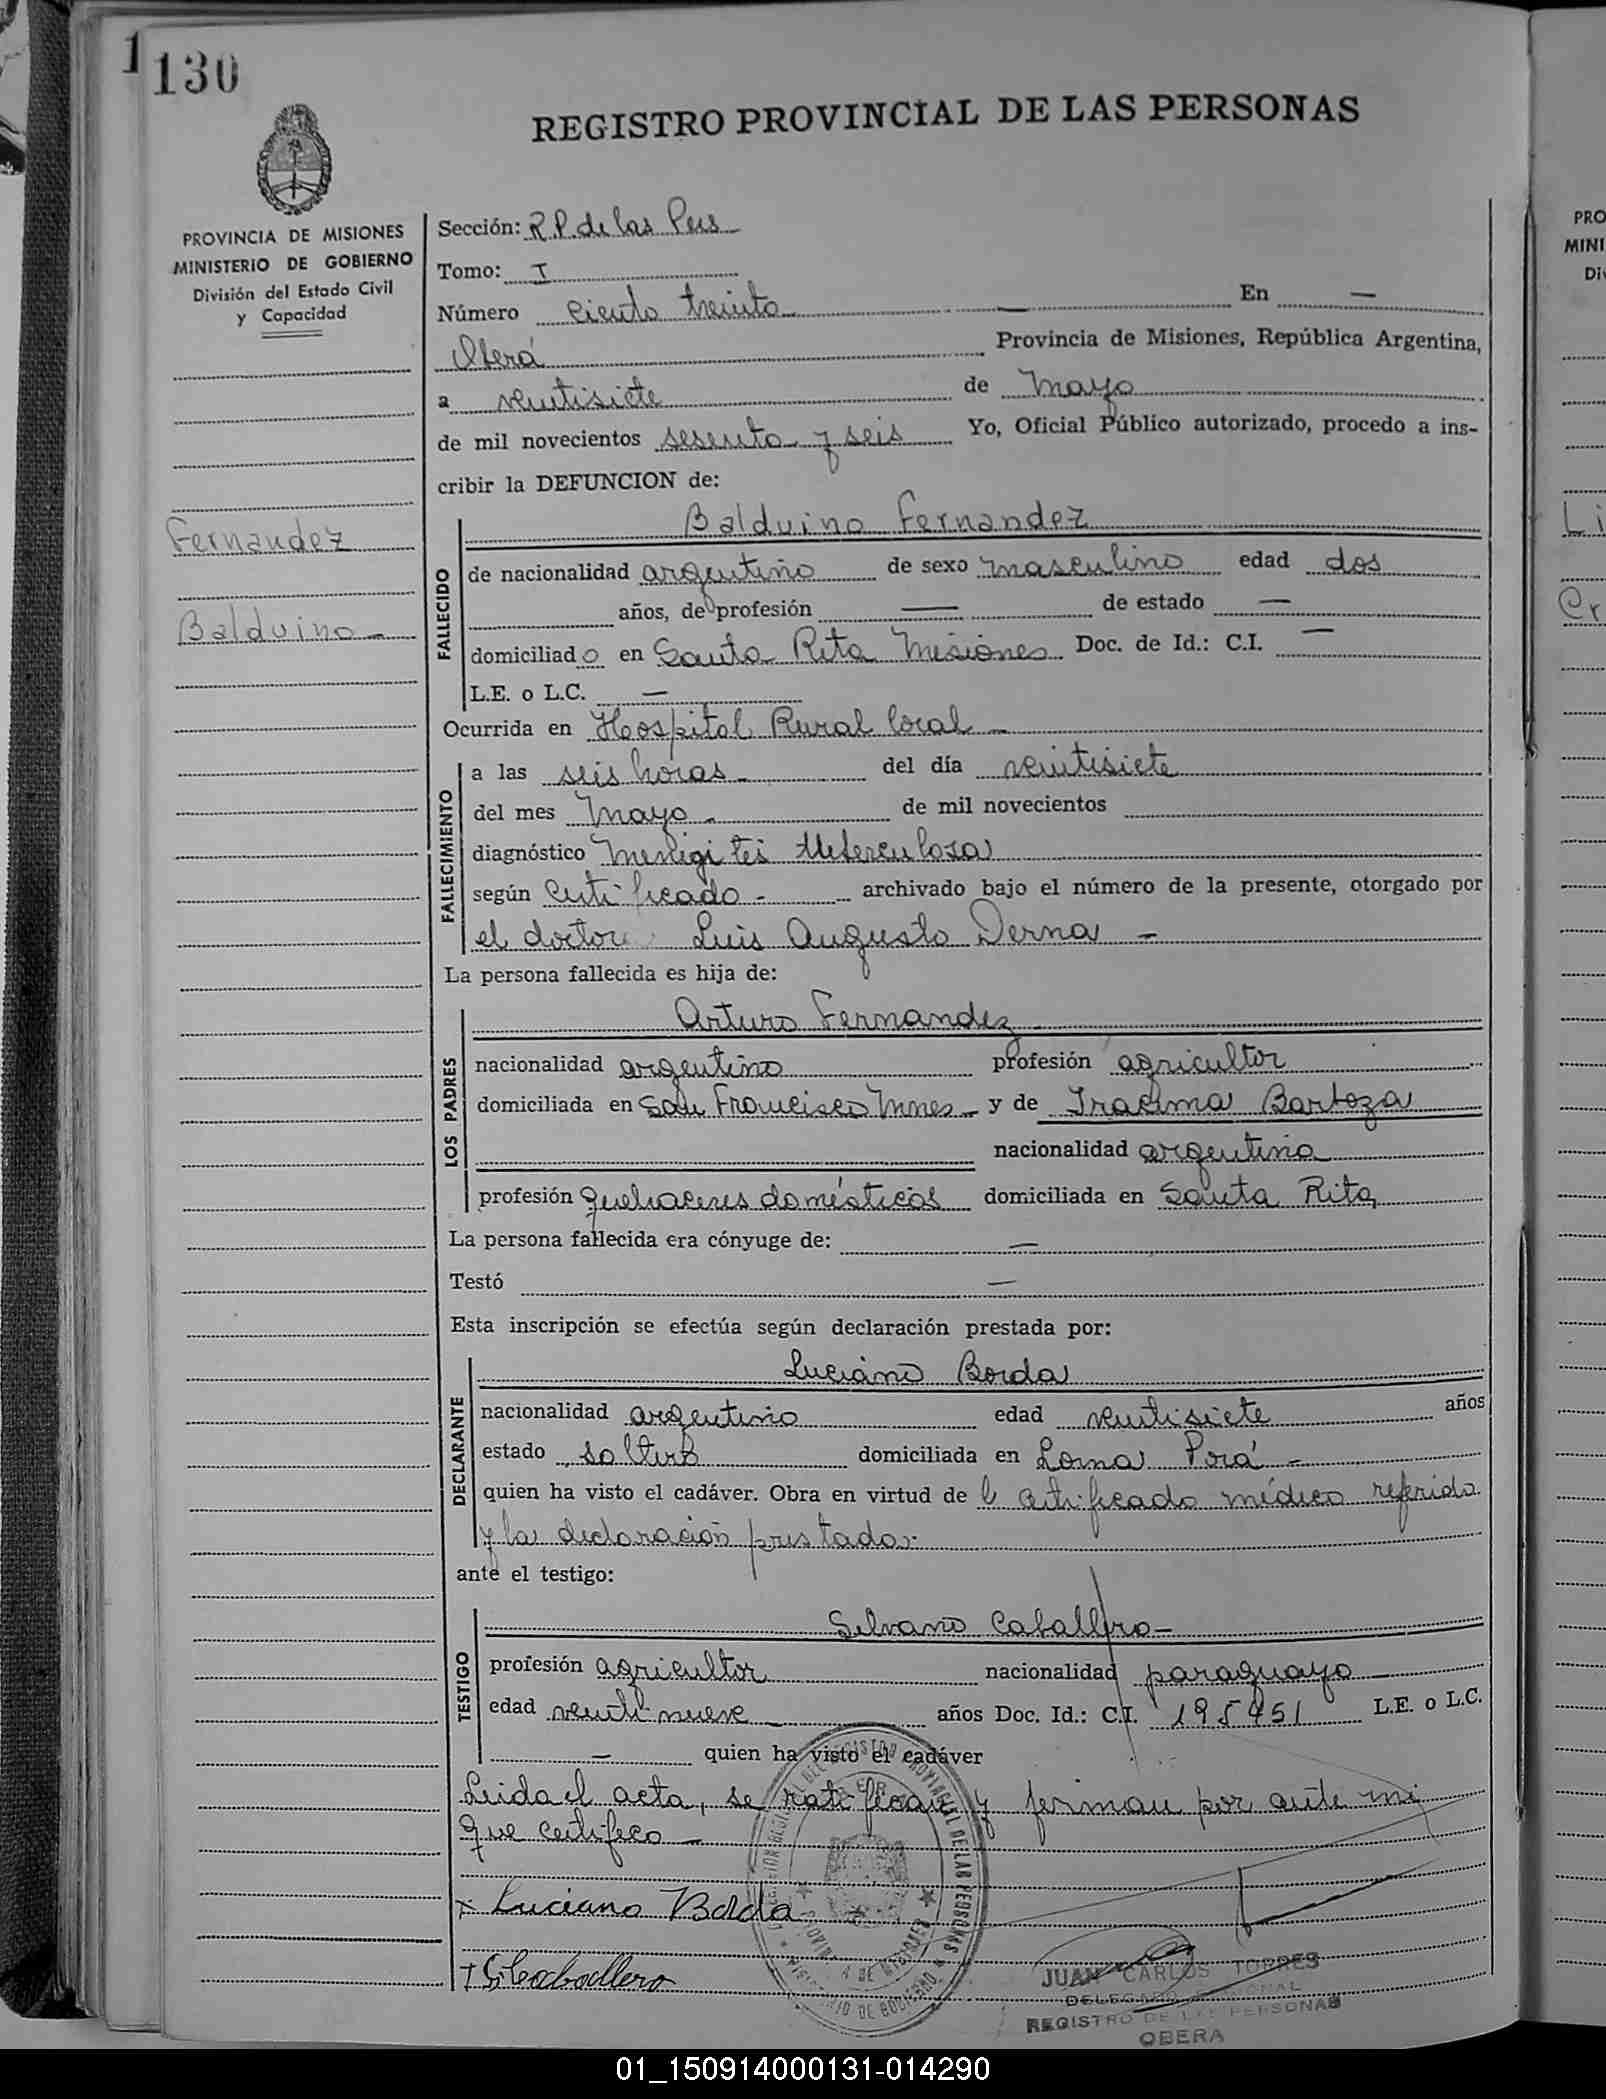 1
130
REGISTRO PROVINCIAL DE LAS PERSONAS
PROVINCIA DE MISIONES
MINISTERIO DE GOBIERNO
División del Estado Civil
y Capacidad
Fernandez
Balduino
Sección: R.P. de las Pers
Tomo: I
Número ciento treinta — En —
Oberá Provincia de Misiones, República Argentina,
a veintisiete de Mayo
de mil novecientos sesenta y seis Yo, Oficial Público autorizado, procedo a ins-
cribir la DEFUNCION de:
FALLECIDO
Balduino Fernandez
de nacionalidad argentino de sexo masculino edad dos
años, de profesión — de estado —
domiciliado en Santa Rita Misiones Doc. de Id.: C.I. —
L.E. o L.C. —
Ocurrida en Hospital Rural local —
FALLECIMIENTO
a las seis horas - del día veintisiete
del mes Mayo - de mil novecientos
diagnóstico Menigitis
según certificado - archivado bajo el número de la presente, otorgado por
el doctor Luis Augusto Derna —
La persona fallecida es hija de:
LOS PADRES
Arturo Fernandez
nacionalidad argentino profesión agricultor
domiciliada en San Francisco Mnes - y de Iracima Barboza
nacionalidad argentina
profesión quehaceres domésticos domiciliada en Santa Rita
La persona fallecida era cónyuge de: —
Testó —
Esta inscripción se efectúa según declaración prestada por:
DECLARANTE
Luciano Borda
nacionalidad argentino edad veintisiete años
estado soltero domiciliada en Loma Porá -
quien ha visto el cadáver. Obra en virtud de l certificado médico referido
y la declaración prestada.
ante el testigo:
TESTIGO
Silvano Caballero —
profesión agricultor nacionalidad paraguayo —
edad veintinueve — años Doc. Id.: C.I. 195451 L.E. o L.C.
— quien ha visto el cadáver
Leida el acta, se ratifican y firman por ante mi
que certifico —
x Luciano Borda
+ Silcaballero
JUAN CARLOS TORRES
DELEGADO REGIONAL
REGISTRO DE LAS PERSONAS
OBERA
PRO
MINI
Di
Li
Cr
01_150914000131-014290